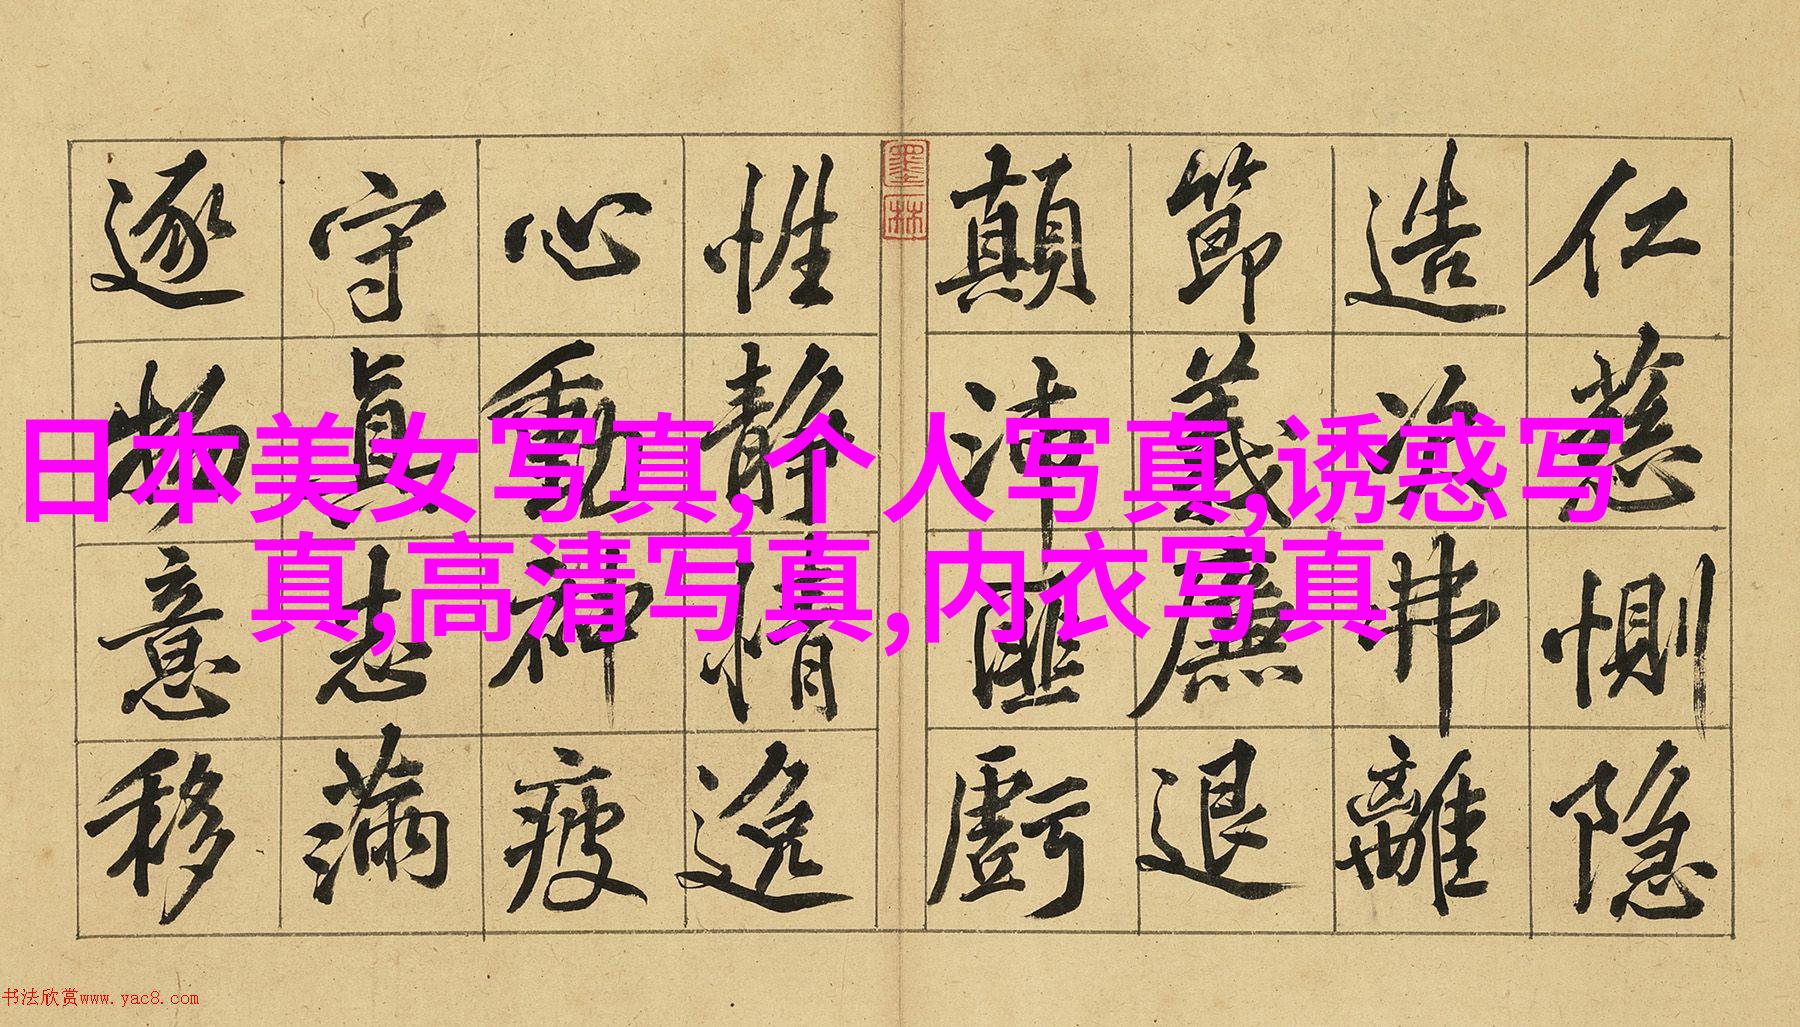 仁慈惻隐
造次弗離
節義廉退
顛沛匪虧
墨林
性静情逸
心動神疲
守真志滿
逐物意移
日本美女写真,个人写真,诱惑写
真,高清写真,内衣写真
书法欣赏www.yac8.com